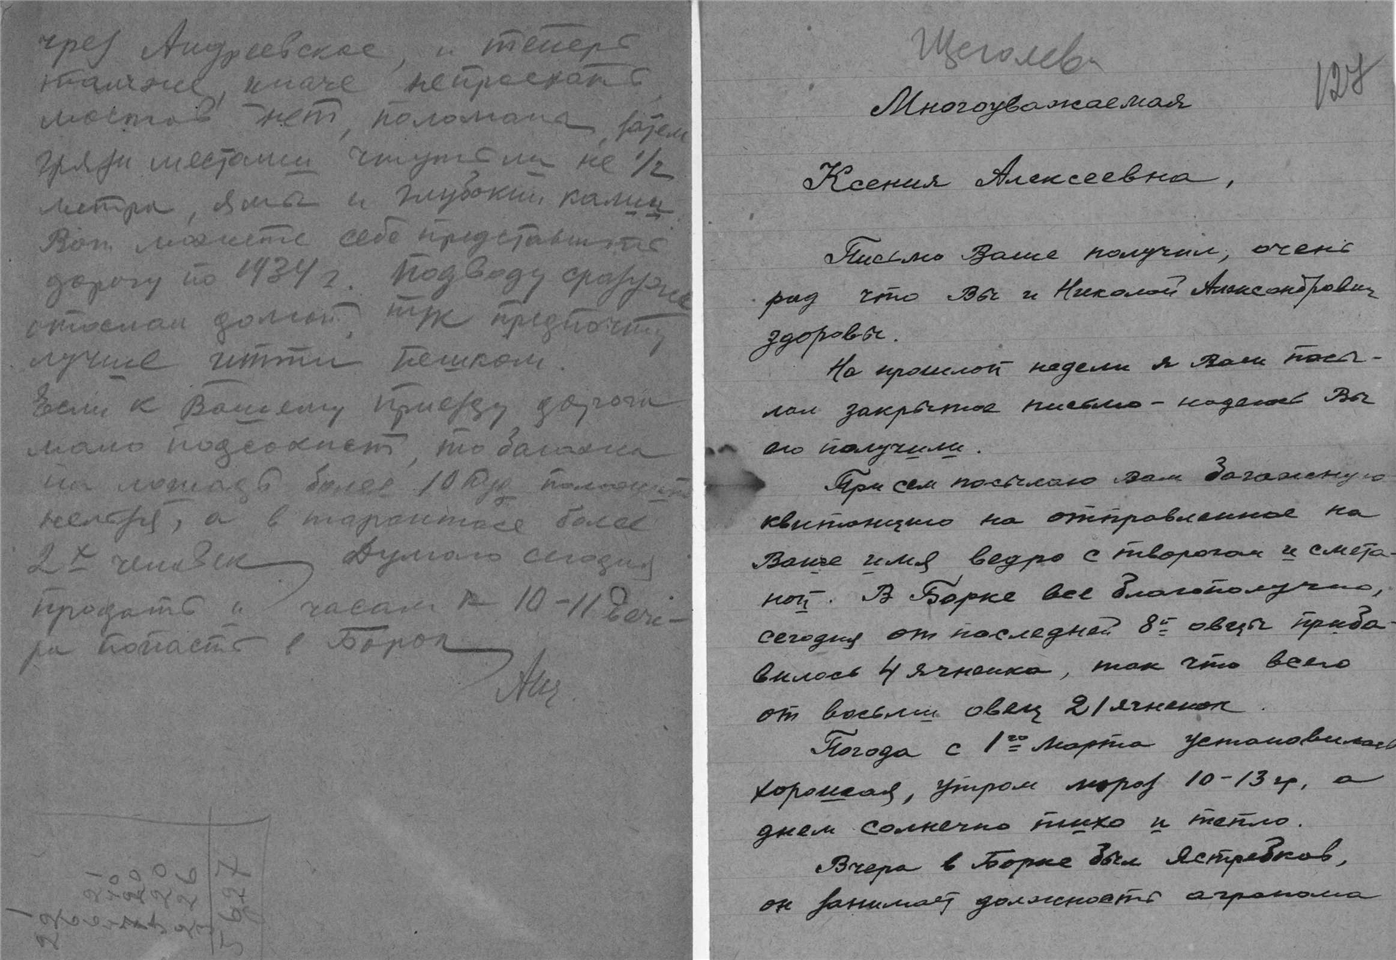 чрез Андреевское, и теперь
также, иначе непроехать,
мостов нет, поломаны, затем
грязи местами чуть ли не 1/2
метра, ямы и глубокий калии
Вот можете себе представить
дорогу по 1934 г. Подводу сразу же
отослал домой, т/к предпочту
лучше итти пешком.
Если к Вашему приезду дорога
мало подсохнет, то багажа
на лошадь более 10 пуд положить
нельзя, а в тарантасе более
2х человек. Думаю сегодня
продать и часам к 10-11 вече-
ра попасть в Борок
АЩ.
Щеголев
127
Многоуважаемая
Ксения Алексеевна,
Письмо Ваше получил, очень
рад что Вы и Николай Александрович
здоровы.
На прошлой недели я Вам посы-
лал закрытое письмо - надеюсь Вы
его получили.
При сем посылаю вам багажную
квитанцию на отправленное на
Ваше имя ведро с творогом и смета-
ной. В Борке все благополучно,
сегодня от последней 8й овцы приба-
вилось 4 ягненка, так что всего
от восьми овец 21 ягненок.
Погода с 1го марта установилась
хорошая, утром мороз 10-13 гр, а
днем солнечно тихо и тепло.
Вчера в Борке был Ястребков,
он занимает должность агронома